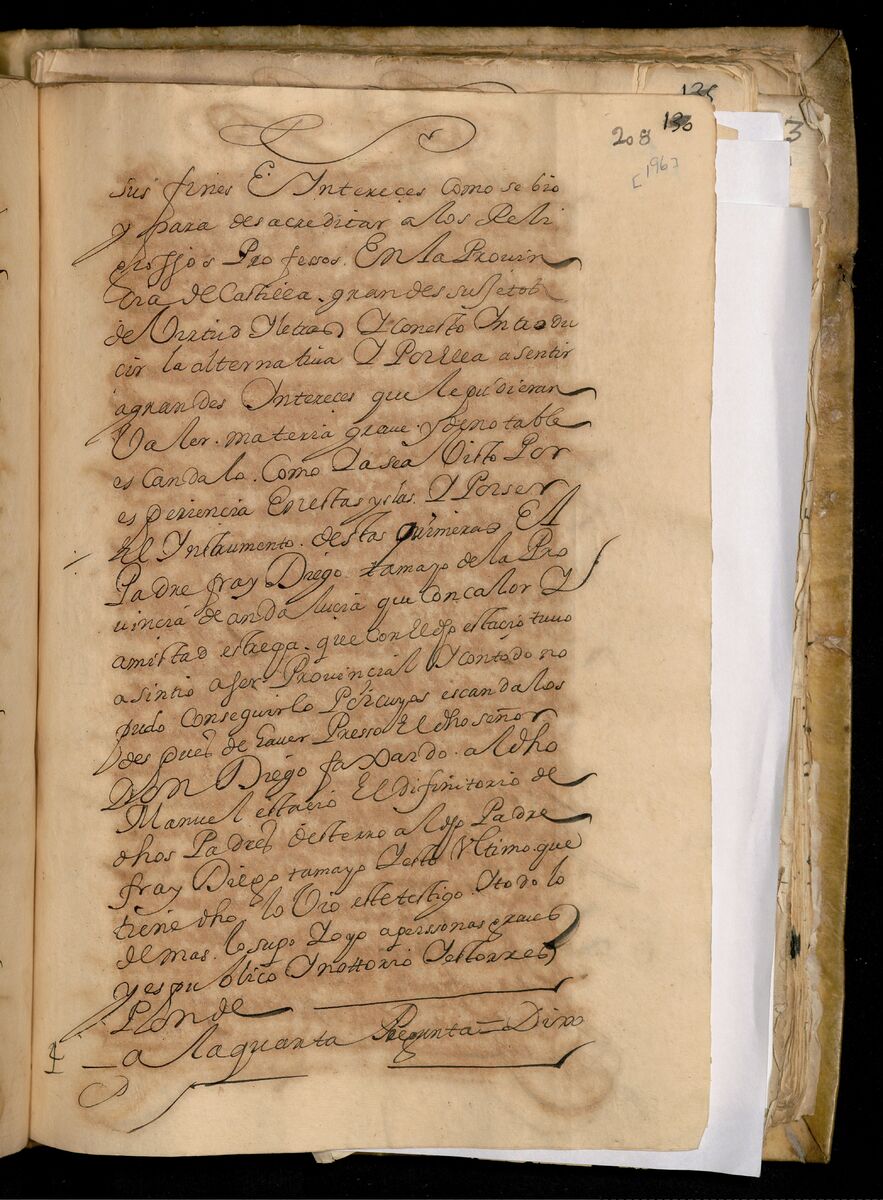 135
208 130
[196]
3
sus fines E Yntereces como se bio
y para desacreditar a los Reli
giossos Professos. En la Provin
cia de Castilla. grandes sujetos
de Virtud Y letras Y con esto Yntrodu
cir la alternativa Y Por ella a sentir
a grandes Yntereces que le pudieran
Valer. materia grave. y de notable
escandalo. Como Ya sea Visto Por
esperiencia En estas yslas. Y Por ser
El Ynstrumento. destas quimeras El
Padre fray Diego tamayo de la Pro
uincia de andalucia que con calor Y
amistad estrega. que con El dho estacio tuuo
asintio a ser Provincial Y con todo no
pudo Conseguirlo Por cuyos escandalos
despues de hauer Presso El dho señor
Don Diego faxardo. al dho
Manuel estacio El difinitorio de
dhos Padres desterro al dho Padre
fray Diego tamayo Y esto Vltimo. que
tiene dho. lo Vio este testigo. Y todo lo
demas. lo supo Y oyo a perssonas graues
y es publico Y nottorio Y esto rres
Ponde
a la quarta Pregunta Dixo